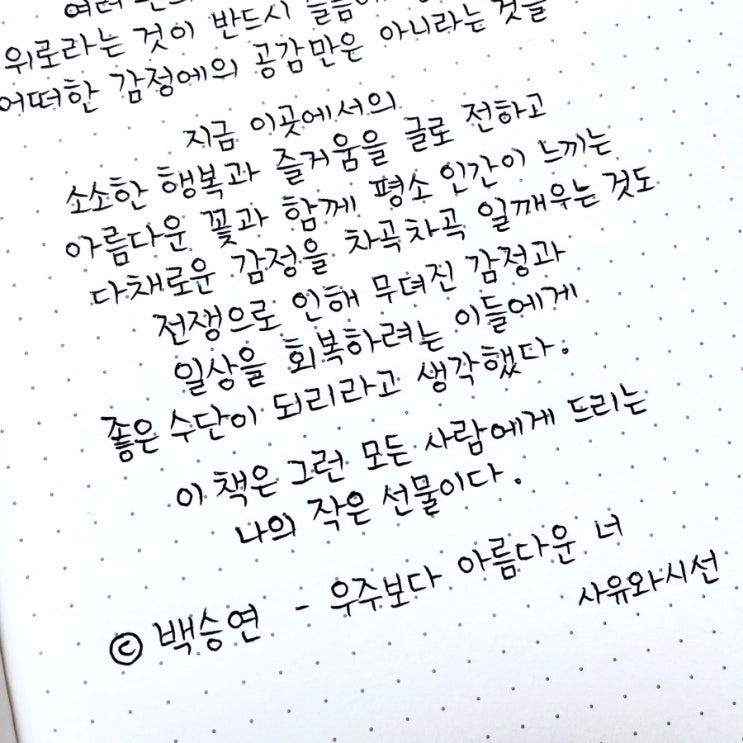 위로라는 것이 반드시
어떠한 감정에의 공감만은 아니라는 것을
지금 이곳에서의
소소한 행복과 즐거움을 글로 전하고
아름다운 꽃과 함께 평소 인간이 느끼는
다채로운 감정을 차곡차곡 일깨우는 것도
전쟁으로 인해 무뎌진 감정과
일상을 회복하려는 이들에게
좋은 수단이 되리라고 생각했다.
이 책은 그런 모든 사람에게 드리는
나의 작은 선물이다.
© 백승연 - 우주보다 아름다운 너
사유와시선